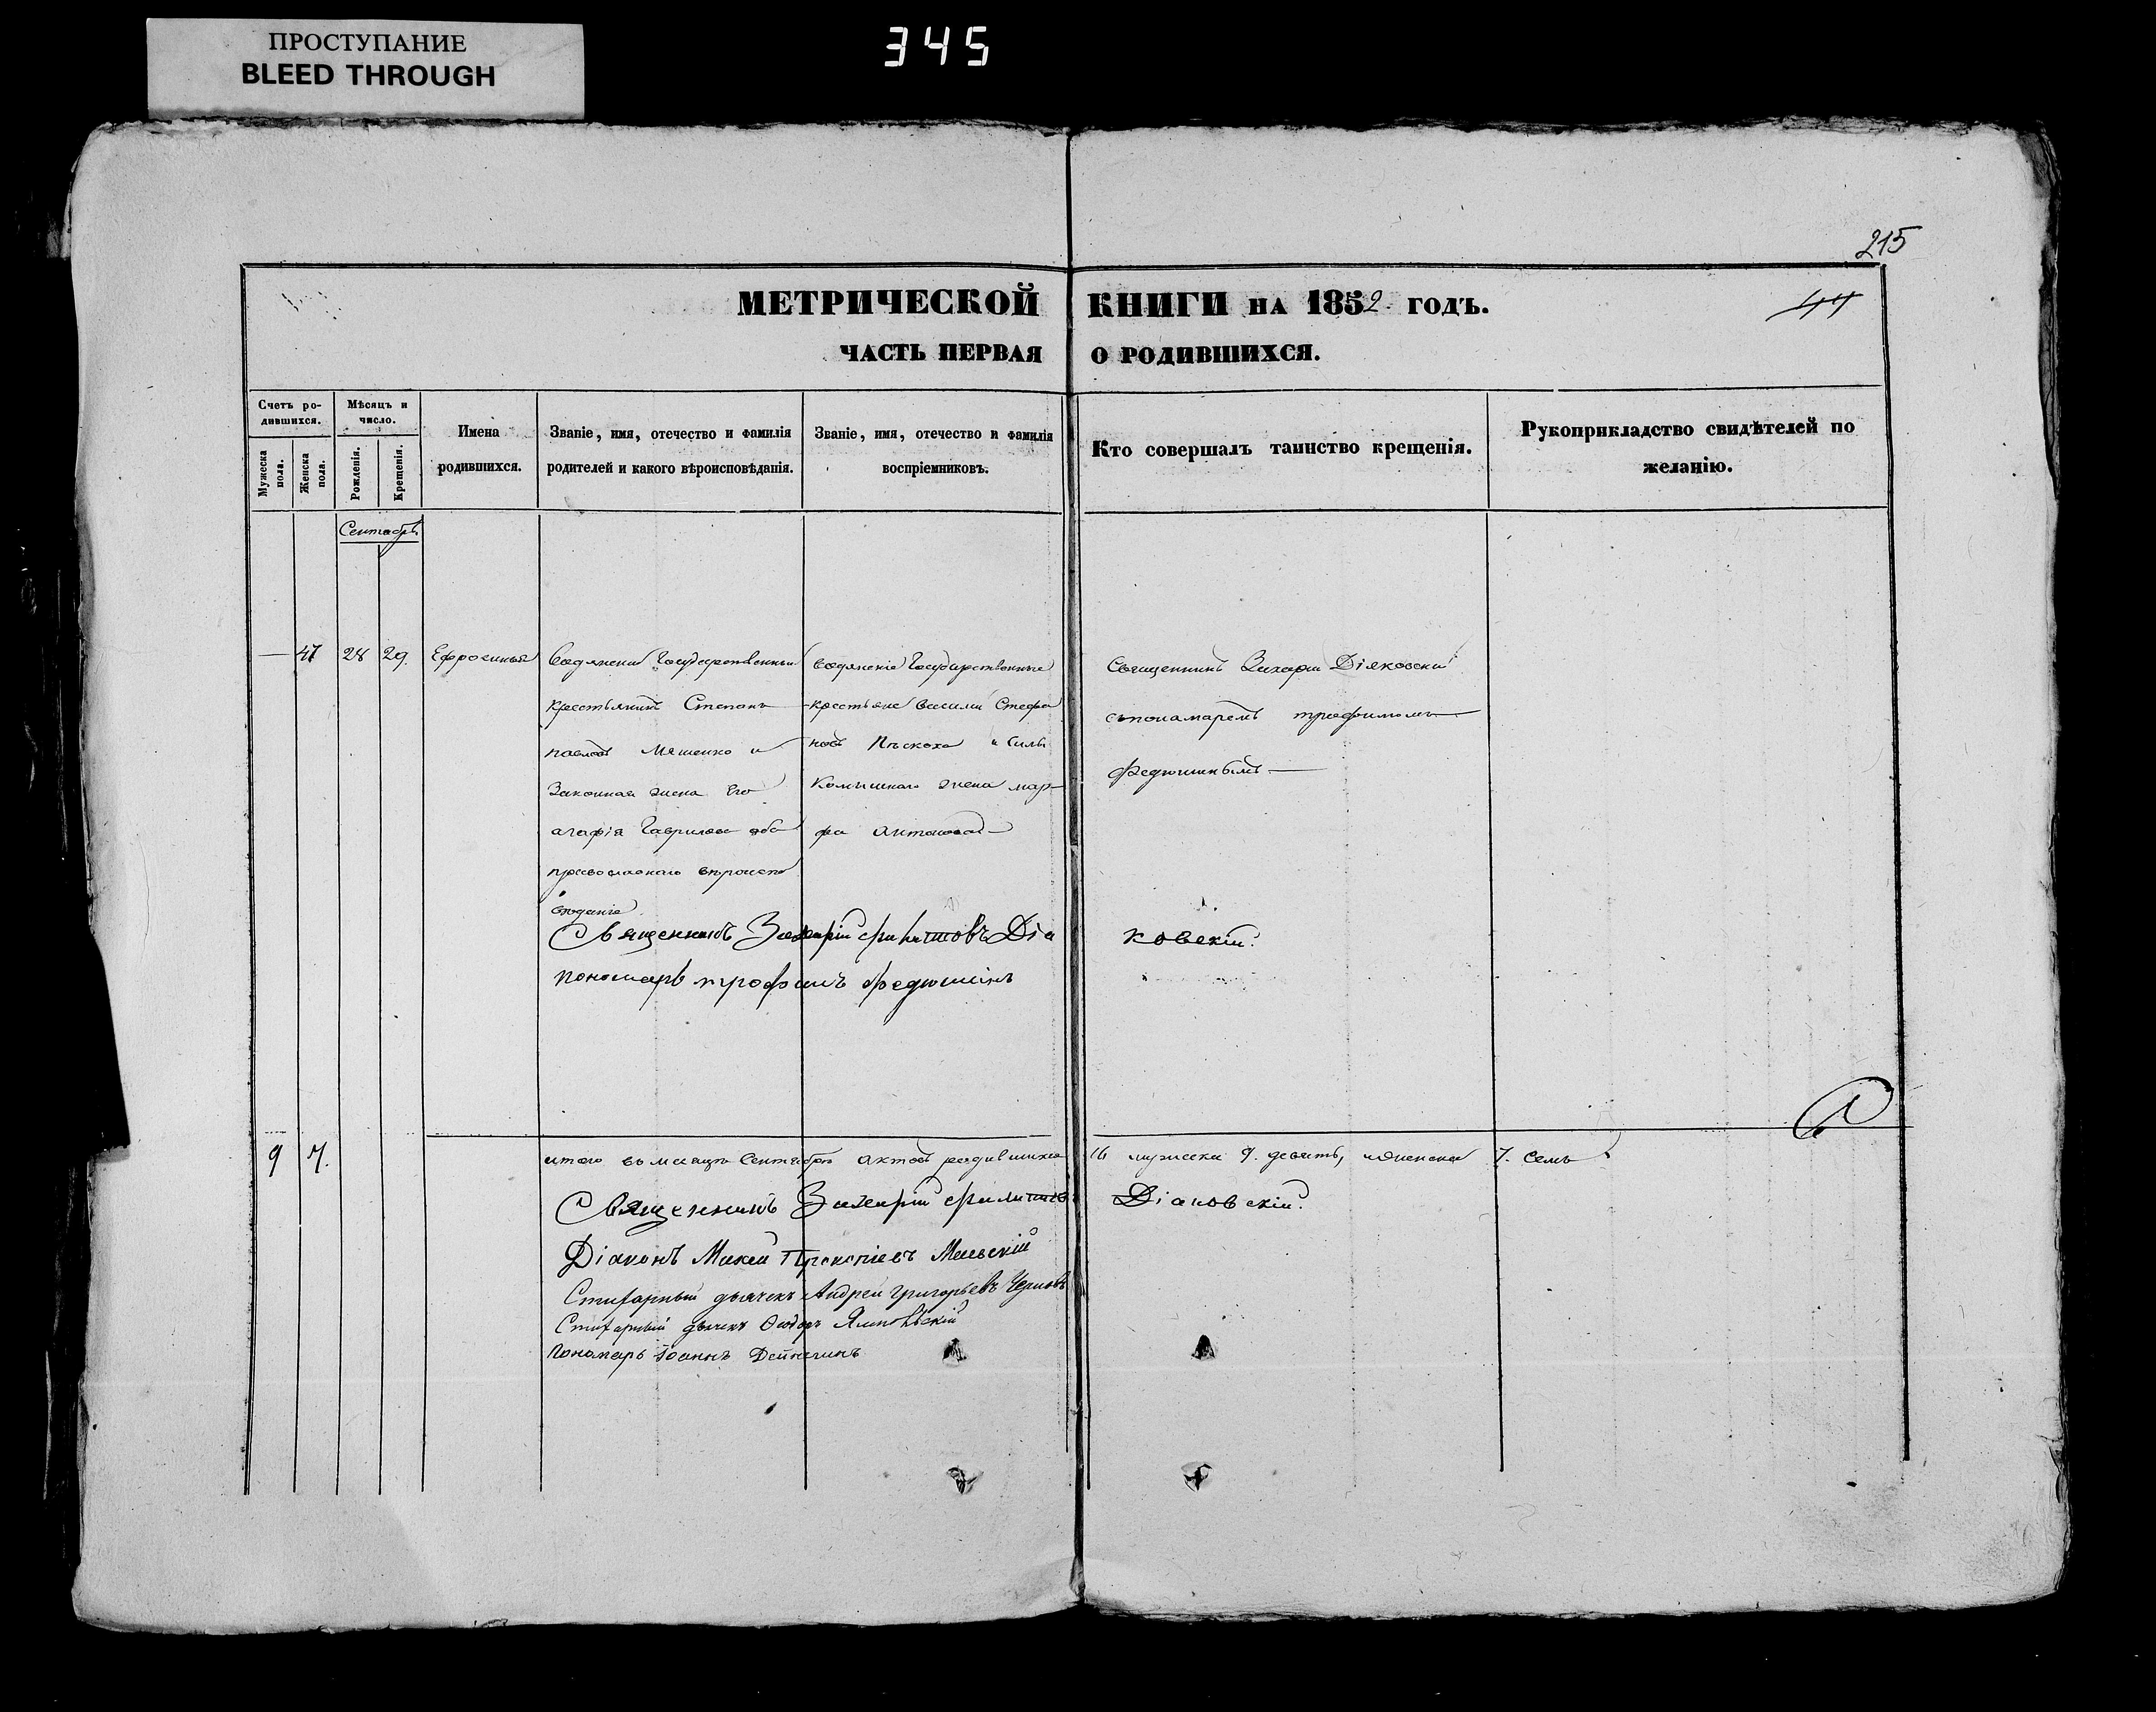 ПРОСТУПАНИЕ
BLEED THROUGH
345
215
МЕТРИЧЕСКОЙ КНИГИ НА 1852 ГОДЪ.
44
ЧАСТЬ ПЕРВАЯ О РОДИВШИХСЯ.
Счетъ ро-
дившихся.
Мужеска
пола.
Женска
пола.
Мѣсяцъ и
число.
Рожденія.
Крещенія.
Имена
родившихся.
Званіе, имя, отечество и фамилія
родителей и какого вѣроисповѣданія.
Званіе, имя, отечество и фамилія
воспріемниковъ.
Кто совершалъ таинство крещенія.
Рукоприкладство свидѣтелей по
желанію.
Сентябрь
— 47 28 29. Ефросинья
Водянски Государственный
крестьянинъ Степанъ
павловъ и
Законная жена Его
агафія Гаврилова оба
православнаго вѣроиспо
вѣданія
водянскіе Государственные
крестьяне Василий Стефа
новъ и Силы
жена мар
фа антонова
Священникъ Захарий Діяковски
съ понамаремъ трофимомъ
Федюшинымъ
Священникъ Захарій Филиповъ Діаковскій.
пономарь трофимъ федюшинъ
9 7.
итого въ месяце Сентябре актовъ родившихся 16 мужеска 9. девять, женска 7. семь
Священникъ Захарій Филиповъ Діаковскій.
Діаконъ Прокопіевъ
Стихарный дьячекъ Андрей Григорьевъ
Стихарный дьячекъ Ѳеодоръ
Пономарь Іоаннъ